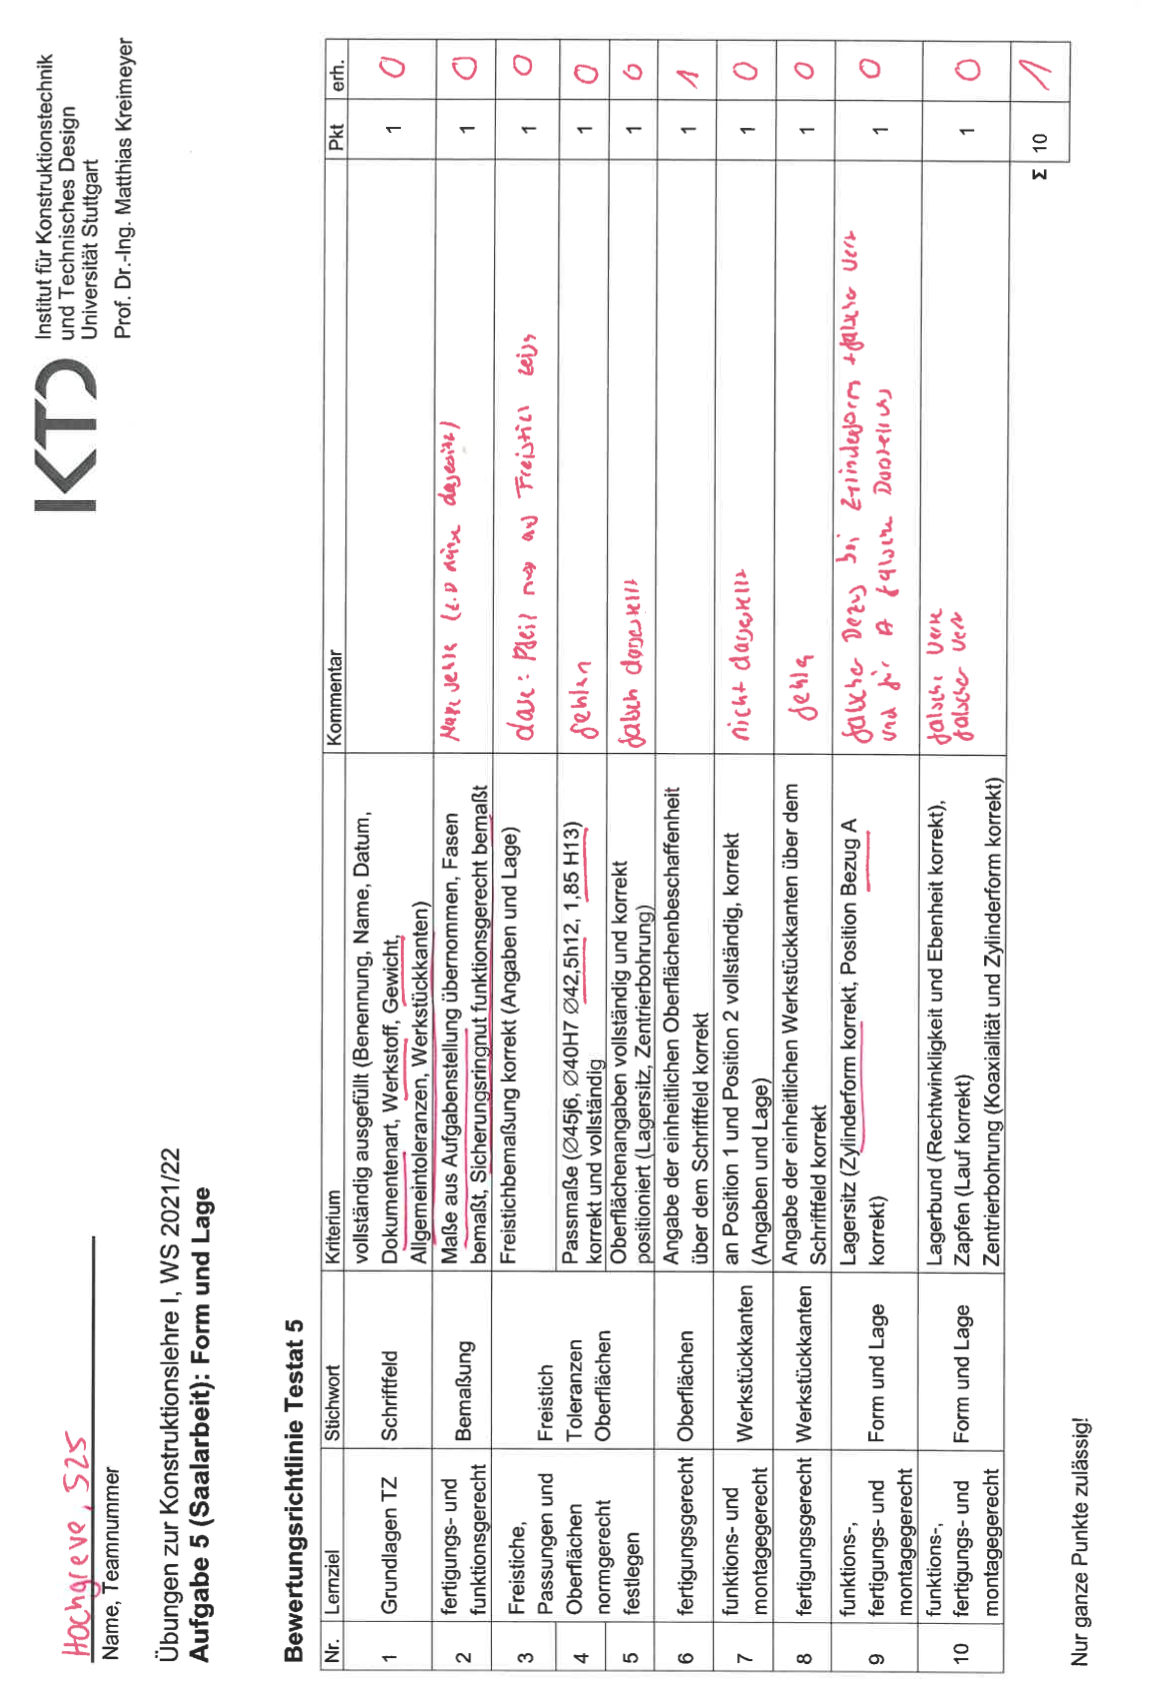 Hochgreve, S25
Name, Teamnummer
KTD
Institut für Konstruktionstechnik
und Technisches Design
Universität Stuttgart
Prof. Dr.-Ing. Matthias Kreimeyer
Übungen zur Konstruktionslehre I, WS 2021/22
Aufgabe 5 (Saalarbeit): Form und Lage
Bewertungsrichtlinie Testat 5
Nr. Lernziel Stichwort Kriterium Kommentar Pkt erh.
1 Grundlagen TZ Schriftfeld
vollständig ausgefüllt (Benennung, Name, Datum,
Dokumentenart, Werkstoff, Gewicht,
Allgemeintoleranzen, Werkstückkanten)
1 0
2 fertigungs- und
funktionsgerecht
Bemaßung
Maße aus Aufgabenstellung übernommen, Fasen
bemaßt, Sicherungsringnut funktionsgerecht bemaßt
1 0
Freistiche,
Passungen und
Oberflächen
normgerecht
festlegen
Freistich
Toleranzen
Oberflächen
3 Freistichbemaßung korrekt (Angaben und Lage)
Freistich
1 0
4 Passmaße (Ø45j6, Ø40H7 Ø42,5h12, 1,85 H13)
korrekt und vollständig
fehlen
1 0
5 Oberflächenangaben vollständig und korrekt
positioniert (Lagersitz, Zentrierbohrung)
falsch dargestellt
1 0
6 fertigungsgerecht Oberflächen
Angabe der einheitlichen Oberflächenbeschaffenheit
über dem Schriftfeld korrekt
1 1
7 funktions- und
montagegerecht
Werkstückkanten
an Position 1 und Position 2 vollständig, korrekt
(Angaben und Lage)
nicht dargestellt
1 0
8 fertigungsgerecht Werkstückkanten
Angabe der einheitlichen Werkstückkanten über dem
Schriftfeld korrekt
1 0
9 funktions-,
fertigungs- und
montagegerecht
Form und Lage
Lagersitz (Zylinderform korrekt, Position Bezug A
korrekt)
falscher Bezug bei Zylinderform + falscher Wert
und für A falsche Darstellung
1 0
10 funktions-,
fertigungs- und
montagegerecht
Form und Lage
Lagerbund (Rechtwinkligkeit und Ebenheit korrekt),
Zapfen (Lauf korrekt)
Zentrierbohrung (Koaxialität und Zylinderform korrekt)
falsche Werte
falscher Wert
1 0
Σ 10 1
Nur ganze Punkte zulässig!